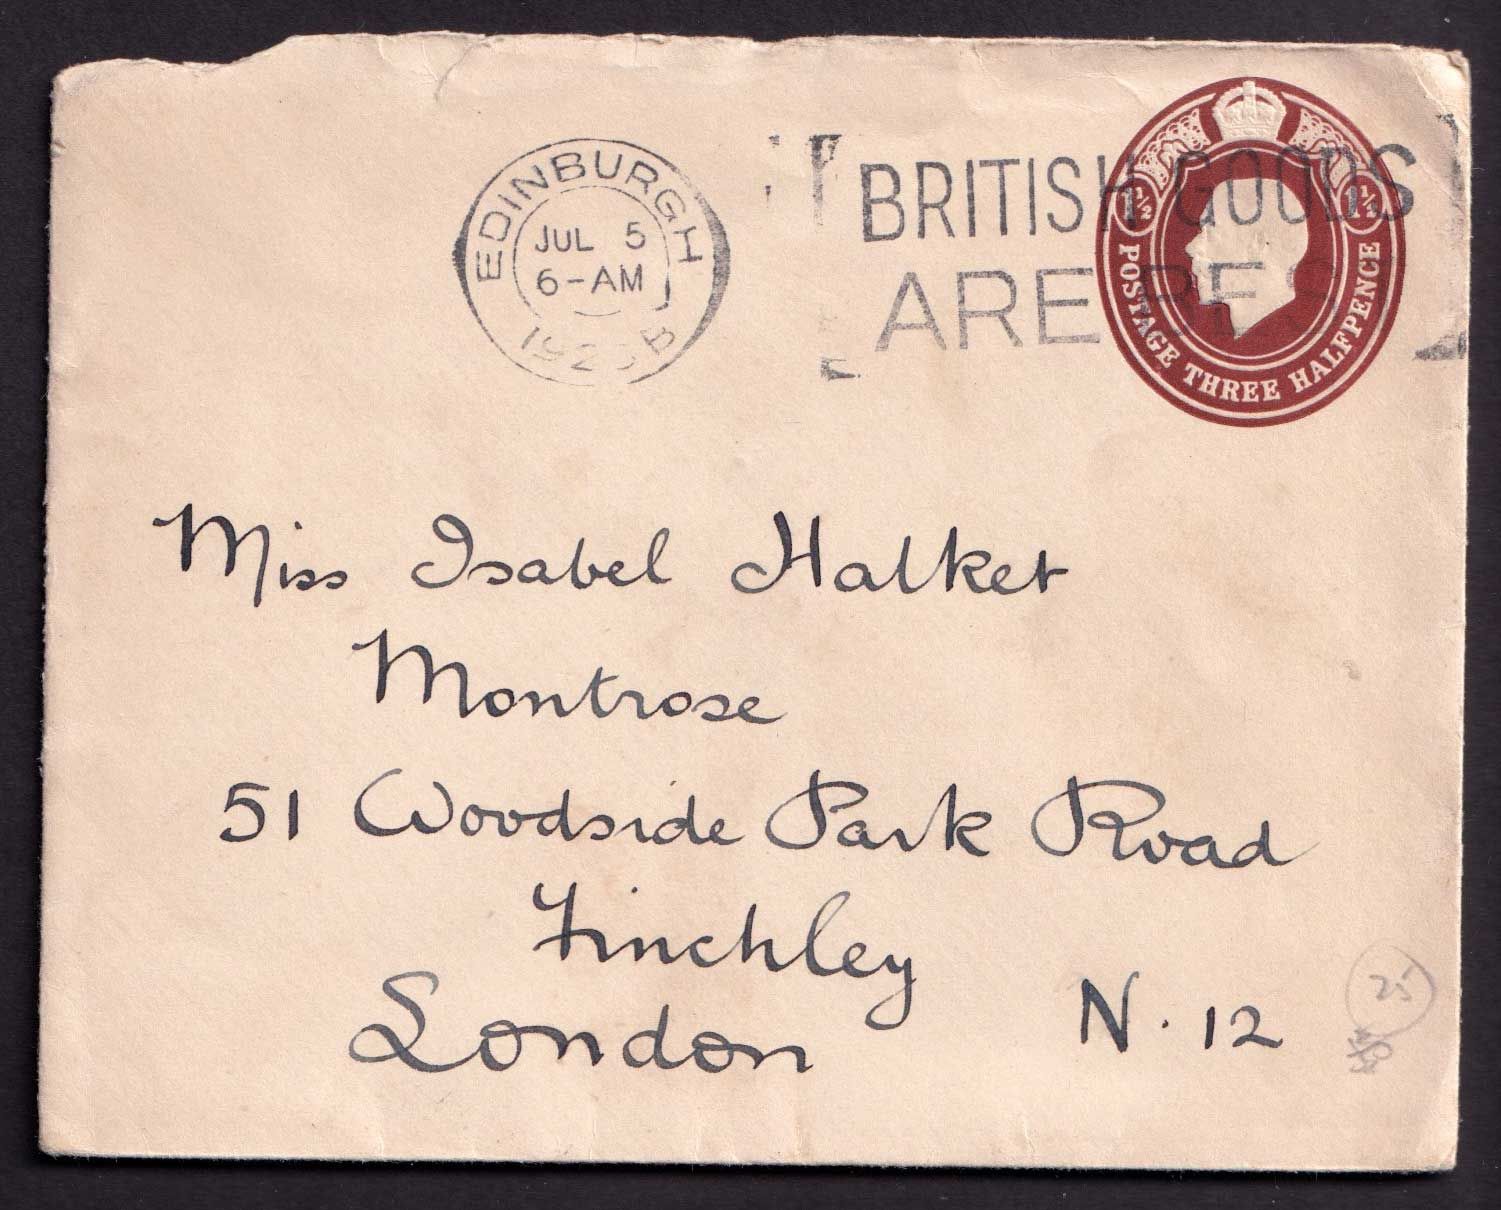 EDINBURGH
JUL 5
6-AM
BRITISH GOODS
ARE BEST
1½ 1½
POSTAGE THREE HALFPENCE
Miss Isabel Halket
Montrose
51 Woodside Park Road
Finchley
London N. 12
25